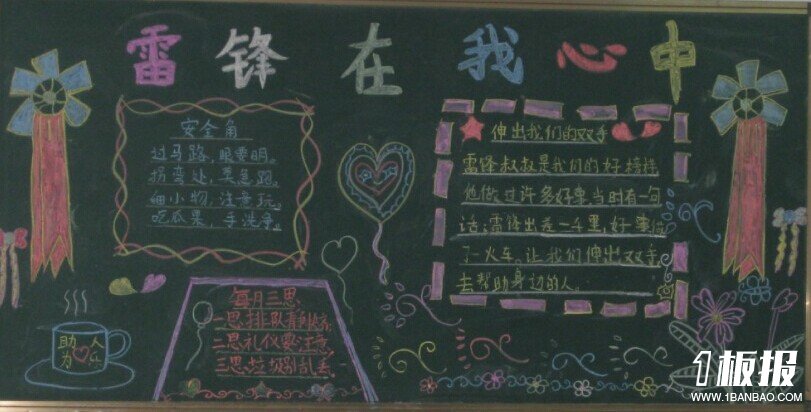 雷锋在我心中
安全角
过马路,眼要明。
拐弯处,莫急跑。
细小物,注意玩。
吃瓜果,手洗净。
伸出我们的双手
雷锋叔叔是我们的好榜样
他做过许多好事,当时有一句
话:雷锋出差一千里,好事做
了一火车。让我们伸出双手,
去帮助身边的人。
每月三思
一思排队
二思礼仪要注意,
三思垃圾别乱丢
助人
为乐
1板报
WWW.1BANBAO.COM